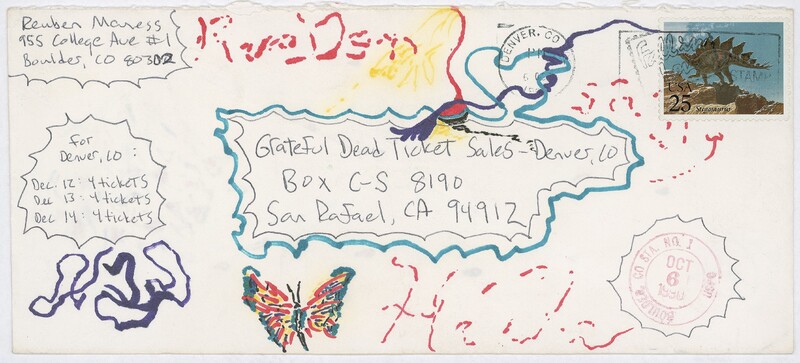 Reuben Maness
955 College Ave #1
Boulder, CO 80302
DENVER, CO
STAMP
USA
25
Stegosaurus
for
Denver, CO :
Dec. 12 : 4 tickets
Dec 13 : 4 tickets
Dec 14 : 4 tickets
Grateful Dead Ticket Sales - Denver, CO
Box C-S 8190
San Rafael, CA 94912
BOULDER, CO STA. NO. 1
OCT
6
1990